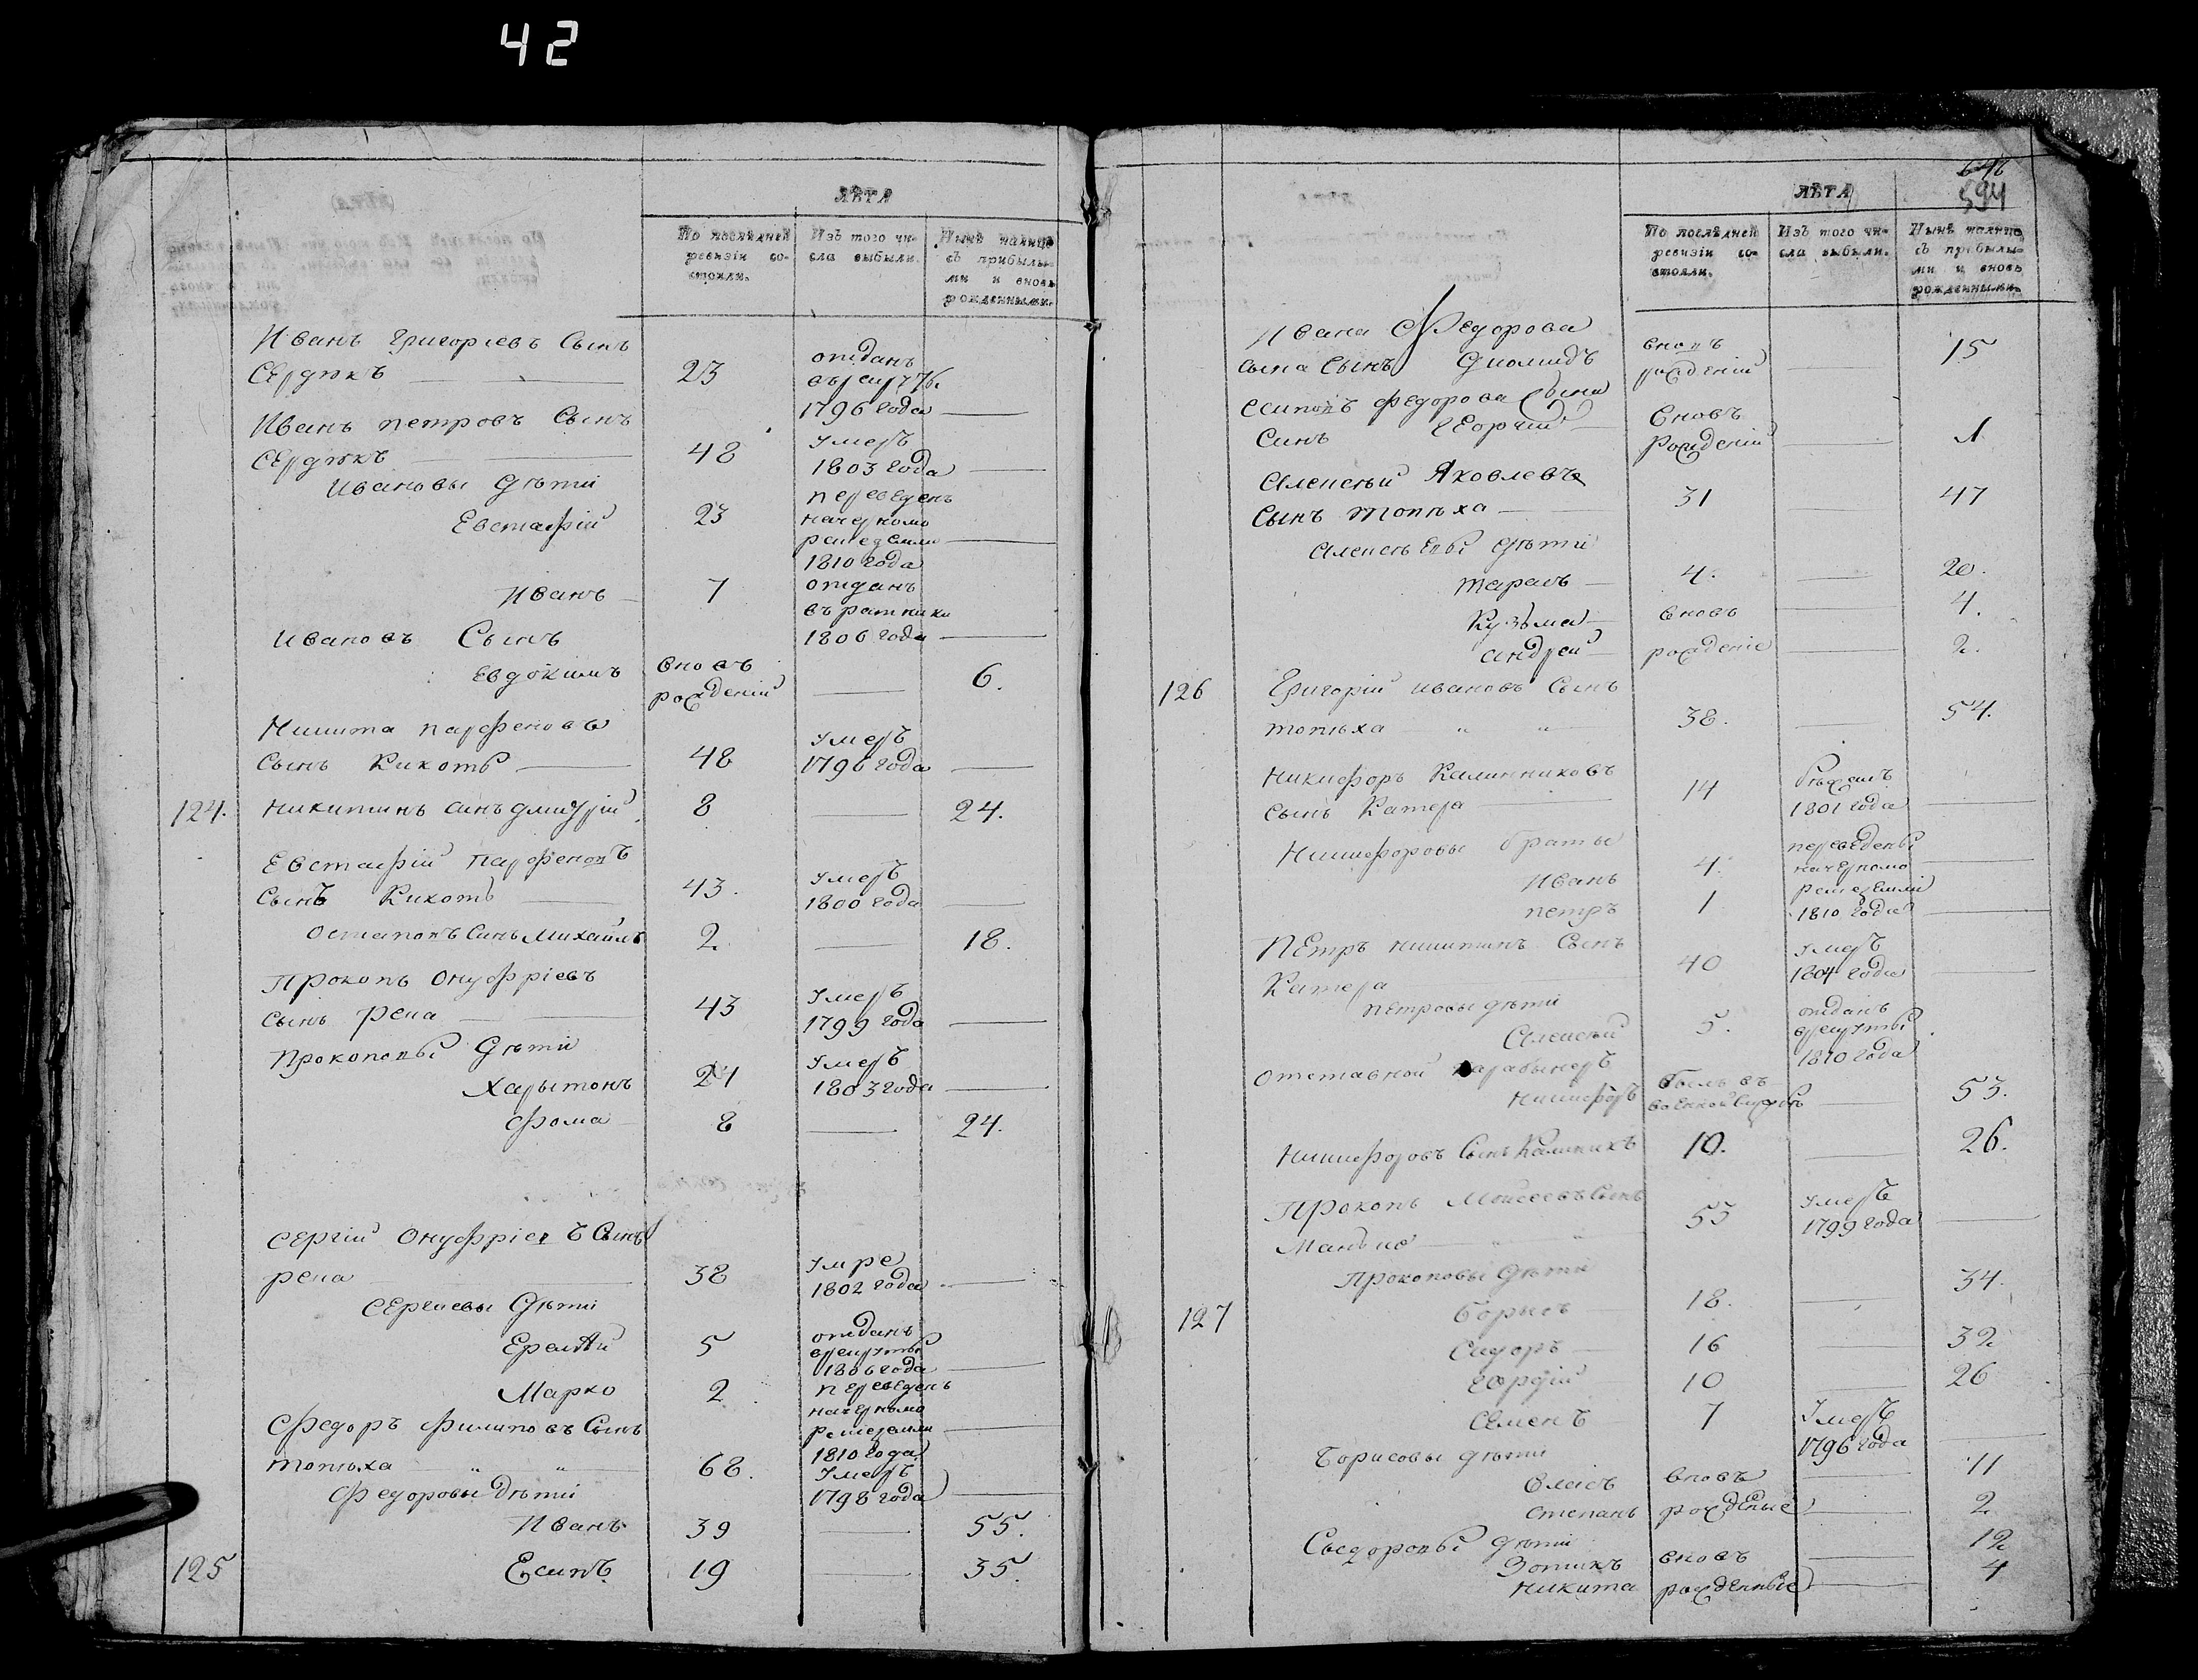 42
ЛѢТА
По послѣдней
ревизіи со-
стояли.
Изъ того чи-
сла выбыли.
Нынѣ налицо
съ прибылы-
ми и вновь
рожденными.
Иванъ Григорiевъ Сынъ
Сердюкъ 23 отданъ
1796 года
Иванъ петровъ Сынъ
Сердюкъ 48 Умеръ
1803 года
Ивановы Дѣти
Евстафiй 23 переведенъ
начерномо
1810 года
Иванъ 7 отданъ
въ ратники
1806 года
Ивановъ Сынъ
Евдокимъ вновь
рожденiй 6.
Никита парфеновъ
Сынъ Кикоть 48 Умеръ
1796 года
124. Никитинъ синъ дмитрiй 8 24.
Евстафiй парфеновъ
Сынъ Кикоть 43. Умеръ
1800 года
Остаповъ Синъ Михаилъ 2. 18.
Прокопъ Онуфрiевъ
Сынъ Репа 43 Умеръ
1799 года
Прокоповы Дѣти
Харытонъ 21 Умеръ
1803 года
Фома 8 24.
Сергiй Онуфрiевъ Сынъ
репа 38 Умре
1802 года
Сергiевы Дѣти
Ермай 5 отданъ
1806 года
Марко 2 переведенъ
начерномо
1810 года
Федоръ Филиповъ Сынъ
топѣха 68. Умеръ
1798 года
Федоровы Дѣти
Иванъ 39 55.
125 Есипъ 19 35.
646
594
ЛѢТА
По послѣдней
ревизіи со-
стояли.
Изъ того чи-
сла выбыли.
Нынѣ налицо
съ прибылы-
ми и вновь
рожденными.
Ивана Федорова
сына Сынъ Диомидъ вновъ
рожденiй 15
Есиповъ федорова Сына
Синъ Георгiй вновъ
Рожденiй 1
Алексѣй Яковлевъ
Сынъ топѣха 31 47
Алексѣевы дѣти
тарасъ 4. 20.
Кузьма вновь 4.
андрей рожденiе 2.
126 Григорiй ивановъ Сынъ
топѣха 38. 54.
Никифоръ Калинниковъ
Сынъ Катера 14
1801 года
Никифоровы браты
Иванъ 4. переведены
начерномо
петръ 1 1810 года
Петръ никитинъ Сынъ
Катера 40 Умеръ
1804 года
петровы дѣти
Алексѣй 5. отданъ
1810 года
Отставной карабынеръ
Никифоръ былъ въ
военной службѣ 53.
Никифоровъ Сынъ Калиникъ 10. 26.
Прокопъ Моисеевъ Сынъ
Манько 55 Умеръ
1799 года
Прокоповы Дѣти
127 Борысъ 18. 34.
Сидоръ 16 32
Гордiй 10 26
Семенъ 7 Умеръ
1796 года
Борисовы дѣти
Власъ вновъ 11
степанъ рожденые 2
Сыдоровы дѣти
Зотикъ вновъ 12
никита рожденные 4